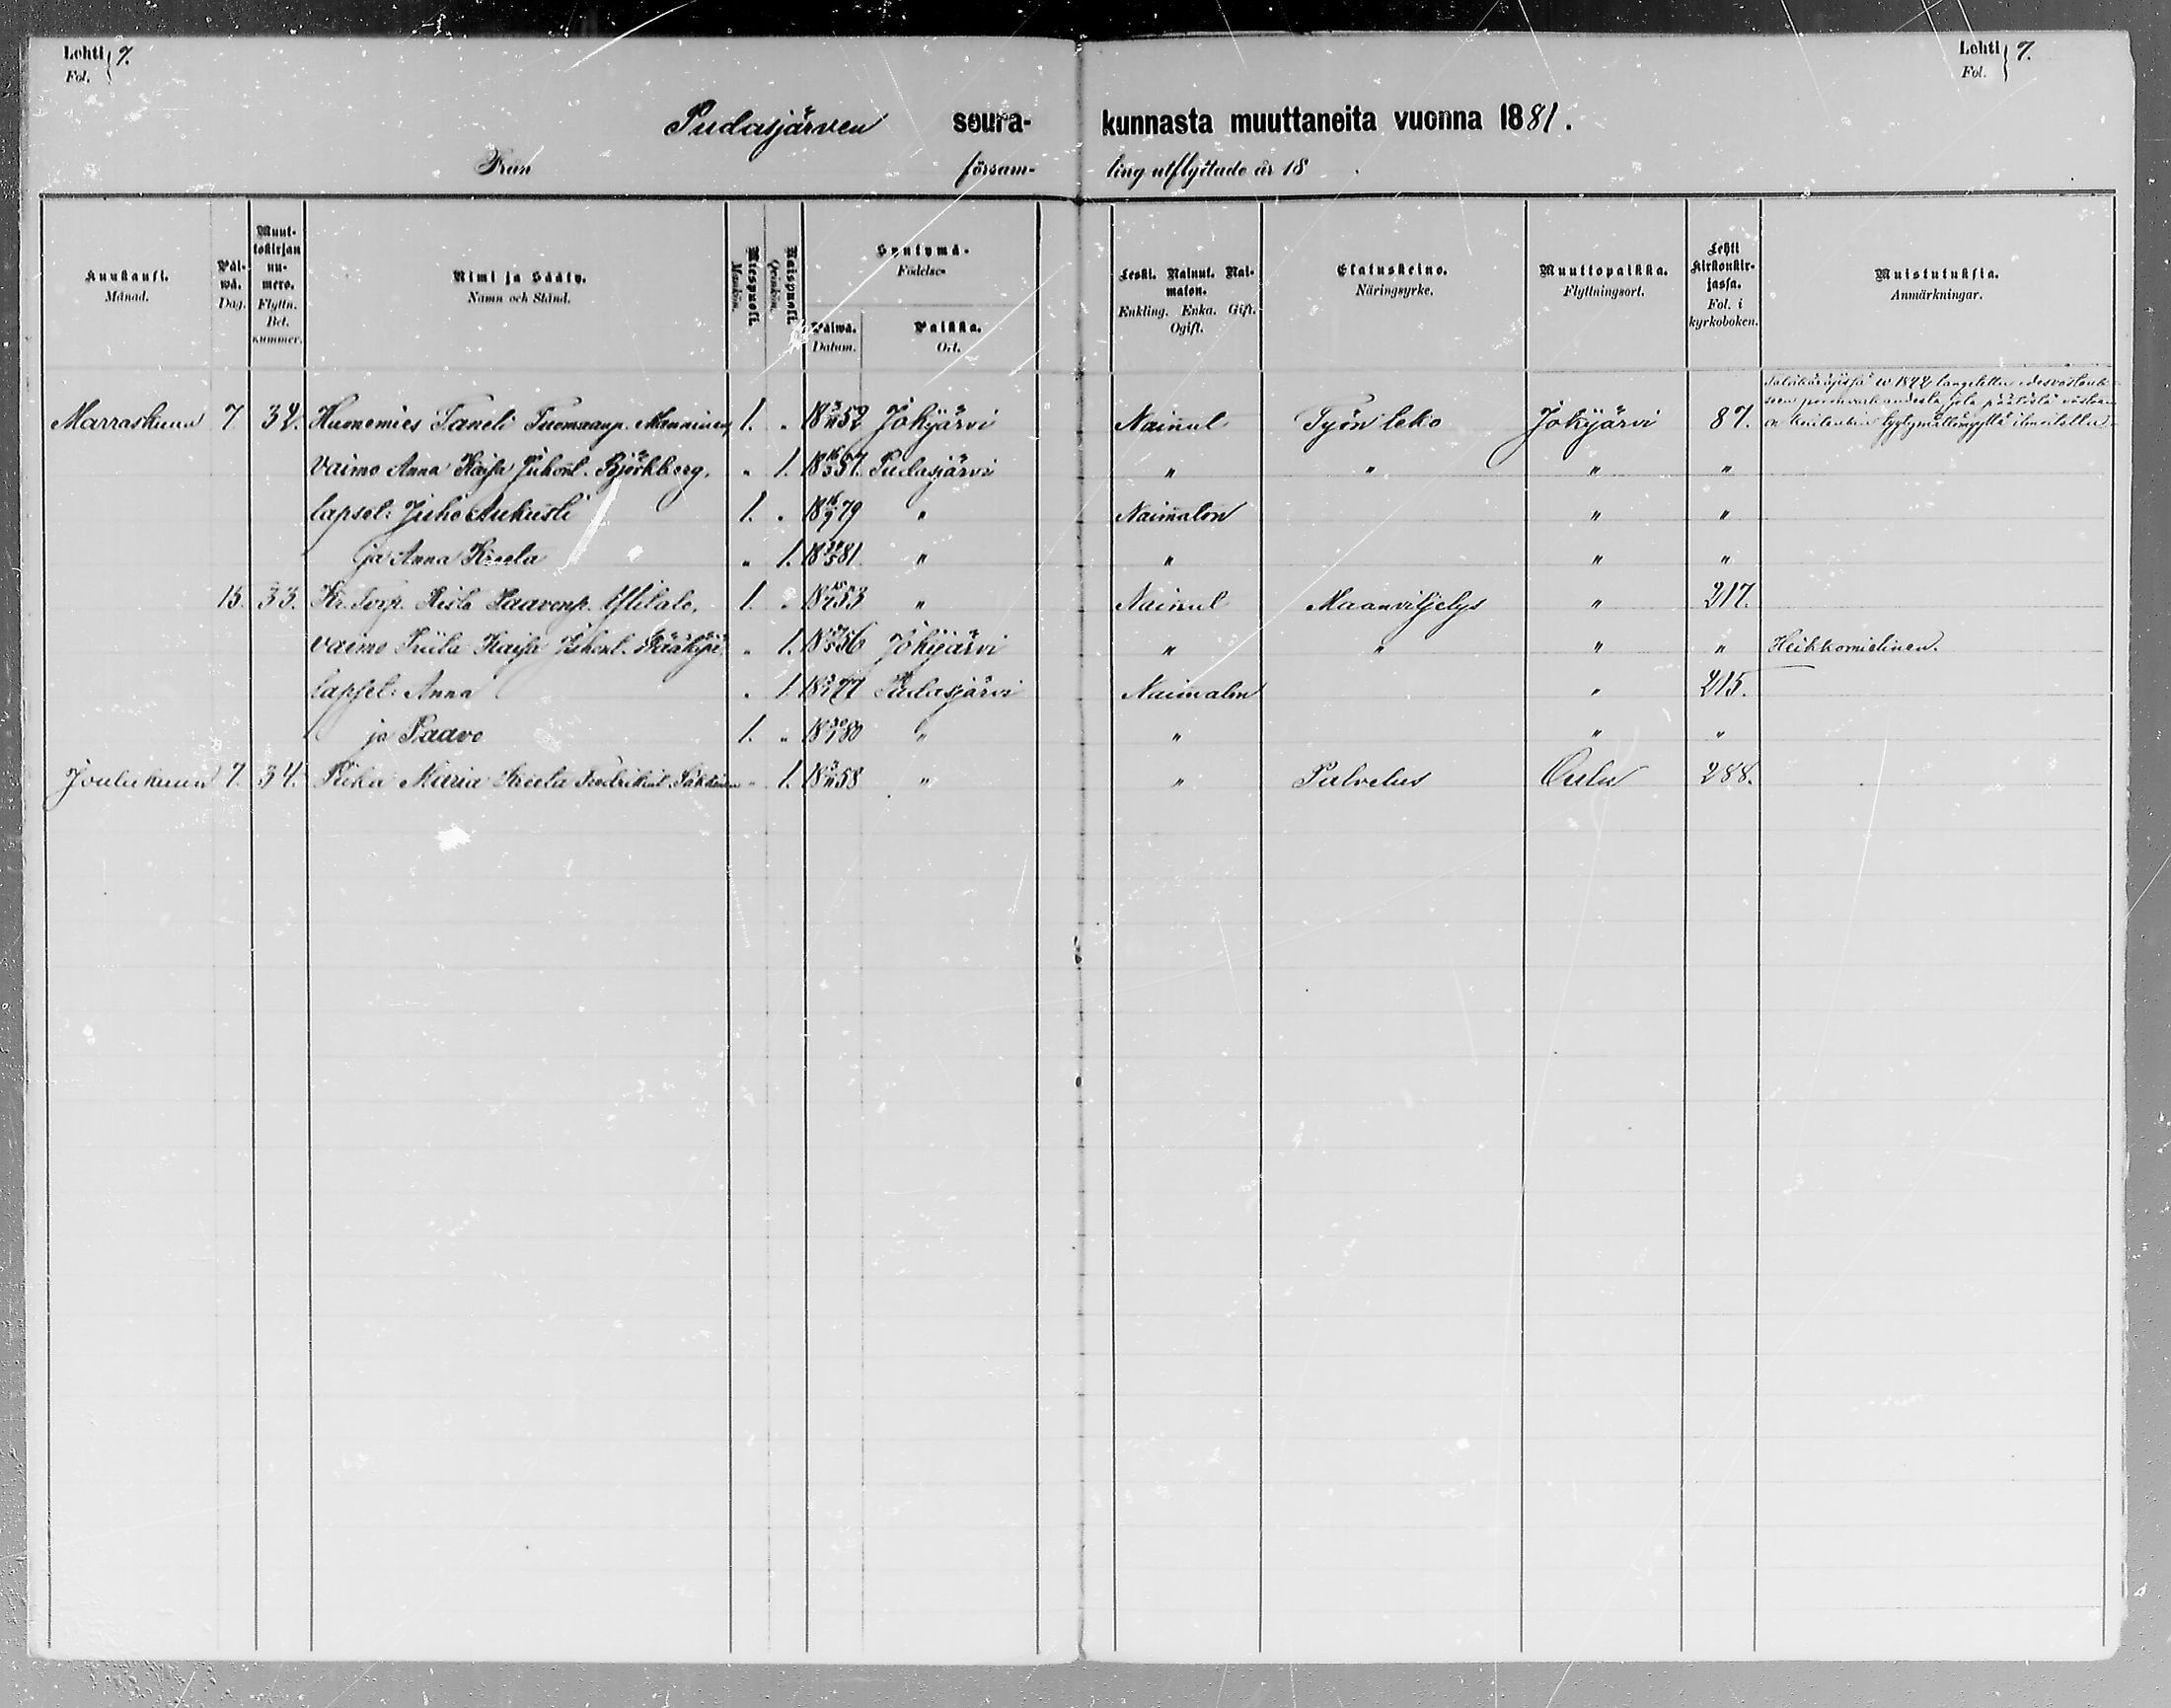 Lehti Fol. } 7.
Lehti Fol. } 7.
Pudasjärven seura- kunnasta muuttaneita vuonna 1881.
Från försam- ling utflyttade år 18 .
Kuukausi. Månad. | Päi-wä. Dag. | Muut-tokirjan nu-mero. Flyttn. Bet. nummer. | Nimi ja Sääty. Namn och Stånd. | Miespuoli. Mankön. | Naispuoli. Qvinkön. | Syntymä- Födelse- Päiwä. Datum. | Paikka. Ort. | Leski. Nainut. Nai-maton. Enkling. Enka. Gift. Ogift. | Elatuskeino. Näringsyrke. | Muuttopaikka. Flyttningsort. | Lehti kirkonkir-jassa. Fol. i kyrkoboken. | Muistutuksia. Anmärkningar.
Marraskuun 7 32. Huonemies Taneli Tuomaanp. Manninen, 1. " 18 52 Jokijärvi Nainut Työn teko Jokijärvi 87.
Vaimo Anna Kaisa Juhont. Björkberg. " 1. 18 57. Pudasjärvi " " " "
lapset: Juho Aukusti 1. " 18 16/9 79 " Naimaton " "
ja Anna Kreeta " 1. 18 81. " " " "
15. 33. Kr. torp. Risto Paavonp. 1. " 18 53 " Nainut Maanviljelys " 217.
vaimo Priita Kaisa Juhont. " 1. 18 56 Jokijärvi " " " " Heikkomielinen.
lapset: Anna " 1. 18 77 Pudasjärvi Naimaton " 215.
ja Paavo 1. " 18 30/1 80 " " " "
Joulukuun 7. 34. Piika Maria Kreeta Fredrikint. " 1. 18 58 " " Palvelus Oulu 288.